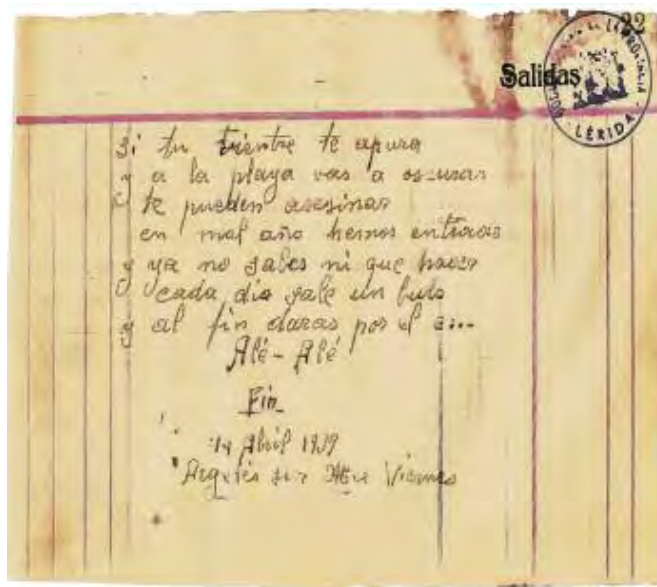 22
Salidas
GOBIERNO DE LA PROVINCIA
- LÉRIDA -
si tu vientre te apura
y a la playa vas a os-urar
te pueden asesinar
en mal año hemos entrado
y ya no sabes ni que hacer
cada dia sale un bulo
y al fin daras por el c...
Alé - Alé
Fin
14 Abril 1939
Argelés sur Mer Viernes